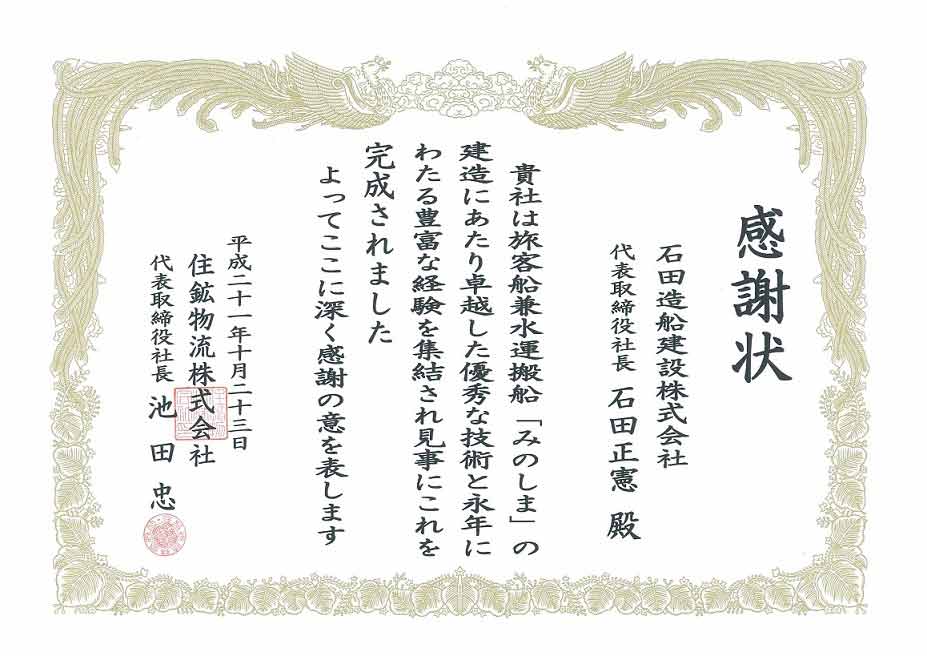 感謝状
石田造船建設株式会社
代表取締役社長 石田正憲 殿
貴社は旅客船兼水運搬船「みのしま」の
建造にあたり卓越した優秀な技術と永年に
わたる豊富な経験を集結され見事にこれを
完成されました
よってここに深く感謝の意を表します
平成二十一年十月二十三日
住鉱物流株式会社
代表取締役社長 池田 忠